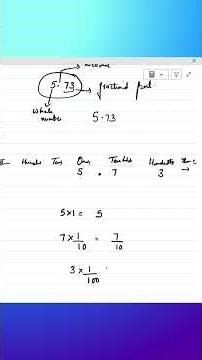 decimal
5.73 → fractional part
whole
number
5.73
Hundreds Tens Ones Tenths Hundredths
5 . 7 3 →
5×1 = 5
7×1/10 = 7/10
3×1/100